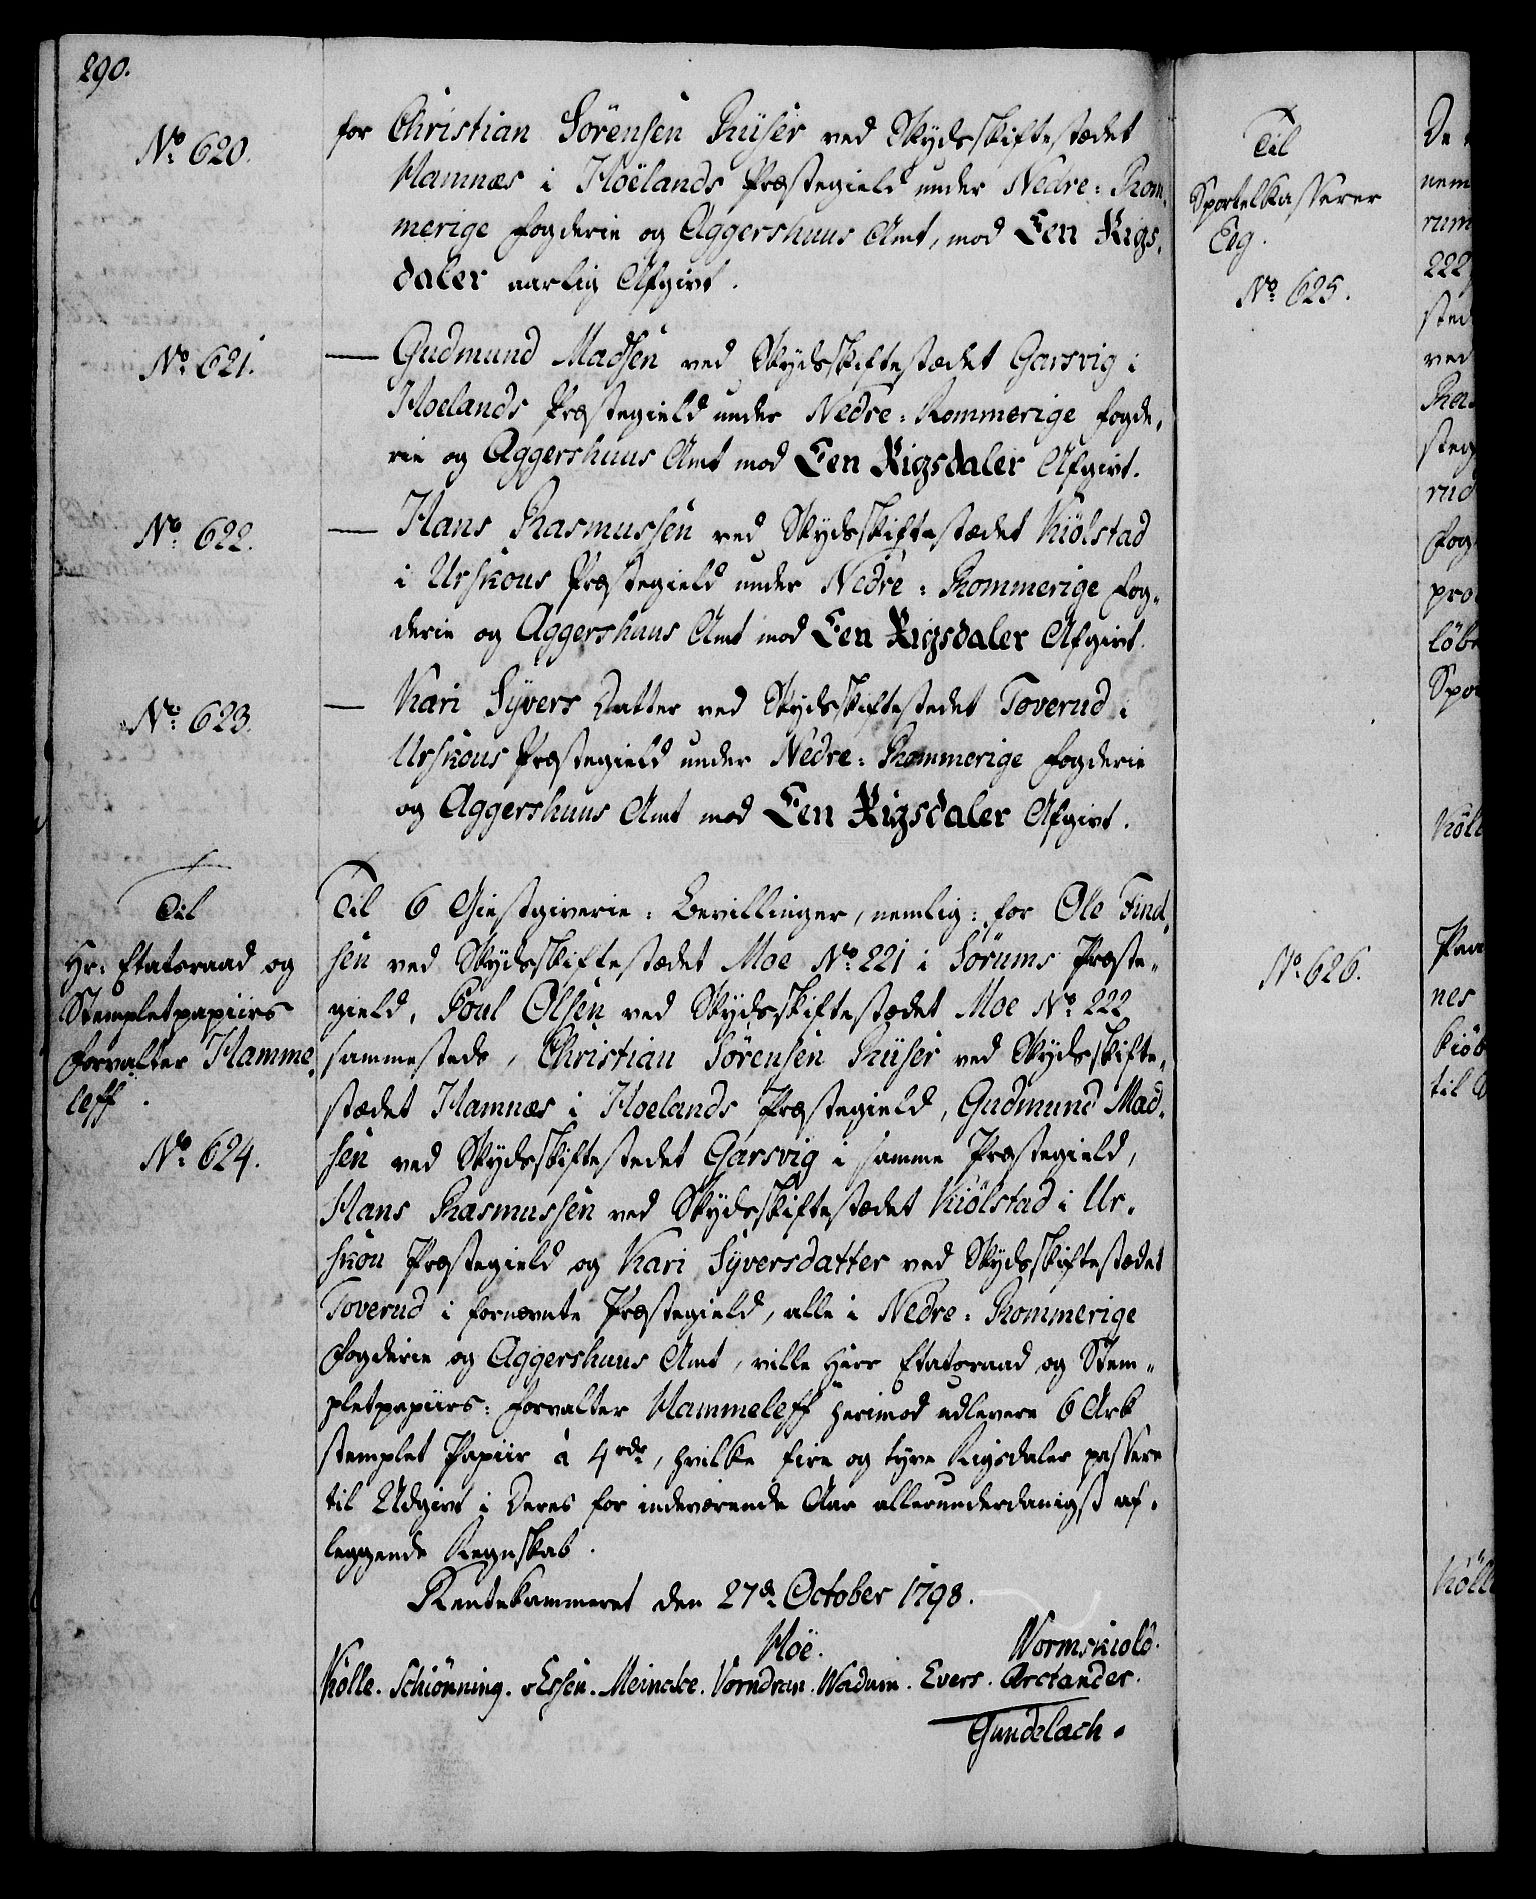 290.
No. 620.
for Christian Sörensen Rüser ved Skydsskiftestædet
Hamnæs i Höelands Præstegield under Nedre-Rom-
merige Fogderie og Aggershuus Amt, mod Een Rigs-
daler aarlig Afgivt.
No. 621.
— Gudmund Madsen ved Skydsskiftestædet Garsvig i
Hoelands Præstegield under Nedre-Rommerige Fogde-
rie og Aggershuus Amt mod Een Rigsdaler Afgivt.
No. 622.
— Hans Rasmussen ved Skydsskiftestædet Kiölstad
i Urskous Præstegield under Nedre-Rommerige Fog-
derie og Aggershuus Amt mod Een Rigsdaler Afgivt.
No. 623.
— Kari Syvers Datter ved Skydsskiftestedet Toverud i
Urskous Præstegield under Nedre-Rommerige Fogderie
og Aggershuus Amt mod Een Rigsdaler Afgivt.
Til
Hr. Etatsraad og
Stempletpapiirs
Forvalter Hamme-
leff.
No. 624.
Til 6 Giestgiverie-Bevillinger, nemlig: for Ole Find-
sen ved Skydsskiftestædet Moe No. 221 i Sörums Præste-
gield, Poul Olsen ved Skydsskiftestædet Moe No. 222
sammesteds, Christian Sörensen Rüser ved Skydsskifte-
stædet Hamnæs i Hoelands Præstegield, Gudmund Mad-
sen ved Skydsskiftestedet Garsvig i samme Præstegield,
Hans Rasmussen ved Skydsskiftestædet Kiölstad i Ur-
skou Præstegield og Kari Syversdatter ved Skydsskiftestædet
Toverud i fornævnte Præstegield, alle i Nedre-Rommerige
Fogderie og Aggershuus Amt, ville Herr Etatsraad og Stem-
pletpapiirs-Forvalter Hammeleff herimod udlevere 6 Ark
stemplet Papiir á 4 rdr, hvilke fire og tyve Rigsdaler passere
til Udgivt i Deres for indeværende Aar allerunderdanigst af-
leggende Regnskab.
Rentekammeret den 27de October 1798.
Höe. Wormskiold.
Kölle. Schiönning. v Essen. Meincke. Vorndran. Wadum. Evers. Arctander.
Gundelach.
Til
Sportelkasserer
Eeg.
No. 625.
No. 626.
De
nem
rum
222
sted
ved
Ra
steg
rud
Fog
pro
löb
Spo
Köll
Paa
nes
Kiöb
til
Köll